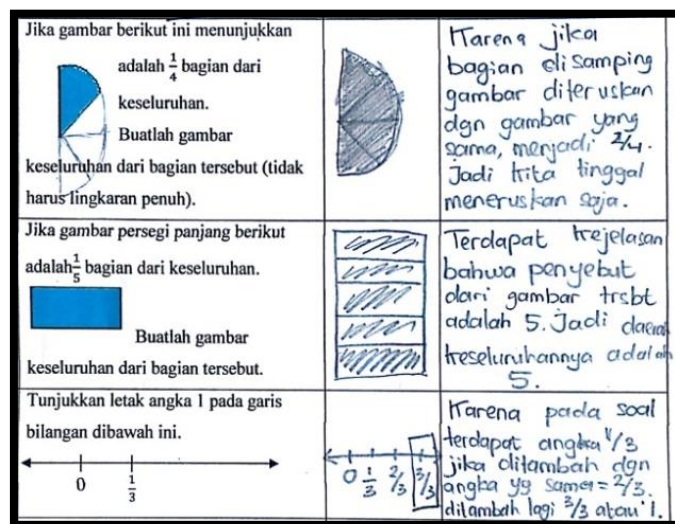 Jika gambar berikut ini menunjukkan
adalah 1/4 bagian dari
keseluruhan.
Buatlah gambar
keseluruhan dari bagian tersebut (tidak
harus lingkaran penuh).
Karena jika
bagian disamping
gambar diteruskan
dgn gambar yang
sama, menjadi 2/4.
Jadi kita tinggal
meneruskan saja.
Jika gambar persegi panjang berikut
adalah 1/5 bagian dari keseluruhan.
Buatlah gambar
keseluruhan dari bagian tersebut.
Terdapat kejelasan
bahwa penyebut
dari gambar trsbt
adalah 5. Jadi daerah
keseluruhannya adalah
5.
Tunjukkan letak angka 1 pada garis
bilangan dibawah ini.
0 1/3
0 1/3 2/3 3/3
Karena pada soal
terdapat angka 1/3
jika ditambah dgn
angka yg sama = 2/3.
ditambah lagi 3/3 atau 1.